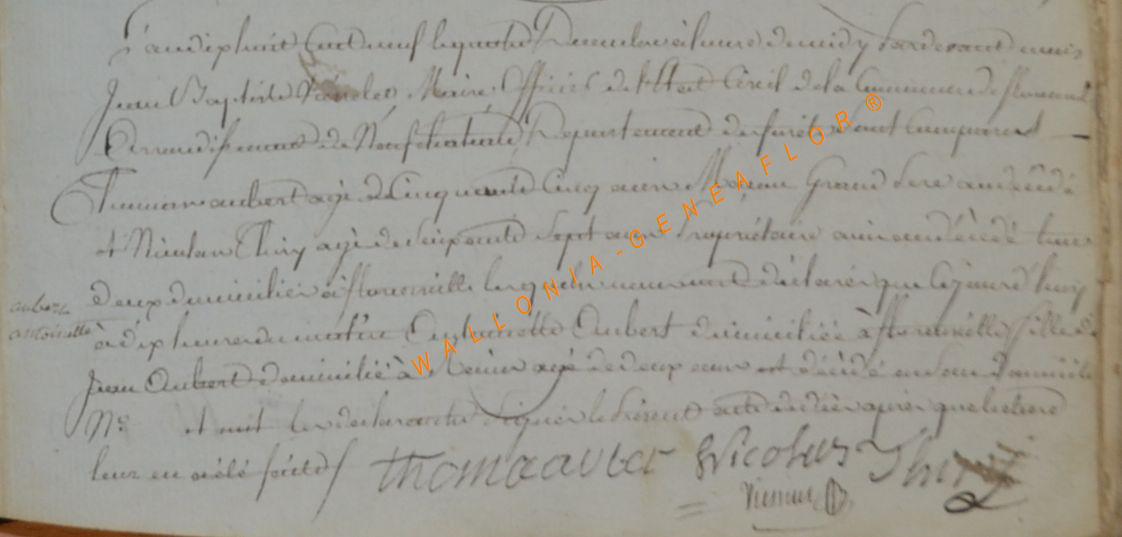 L'an dix huit Cent neuf le quatre Decembre à l'heure de midy Pardevant nous
Jean Baptiste Maire Officier de l'Etat Civil de la Commune de florenville
Arrondissement de Neufchateau Departement des forêts sont comparus
Thomas aubert agé de Cinquante Cinq ans Grand Pere au décédé
et Nicolas Thiry agé de soixante sept ans Propriétaire décédé tous
deux domiciliés à florenville lesquels nous ont déclaré que Cejourd'huy
aubert
antoinette
à dix heures du matin Antoinette Aubert domiciliée à florenville fille de
Jean Aubert domicilié à agé de deux ans est décédé en son domicile
N° et ont les declarants signés le Présent acte de décès après que lecture
leur en a été faite
thoma aubert Nicolas Thiry
WALLONIA-GENEAFLOR®